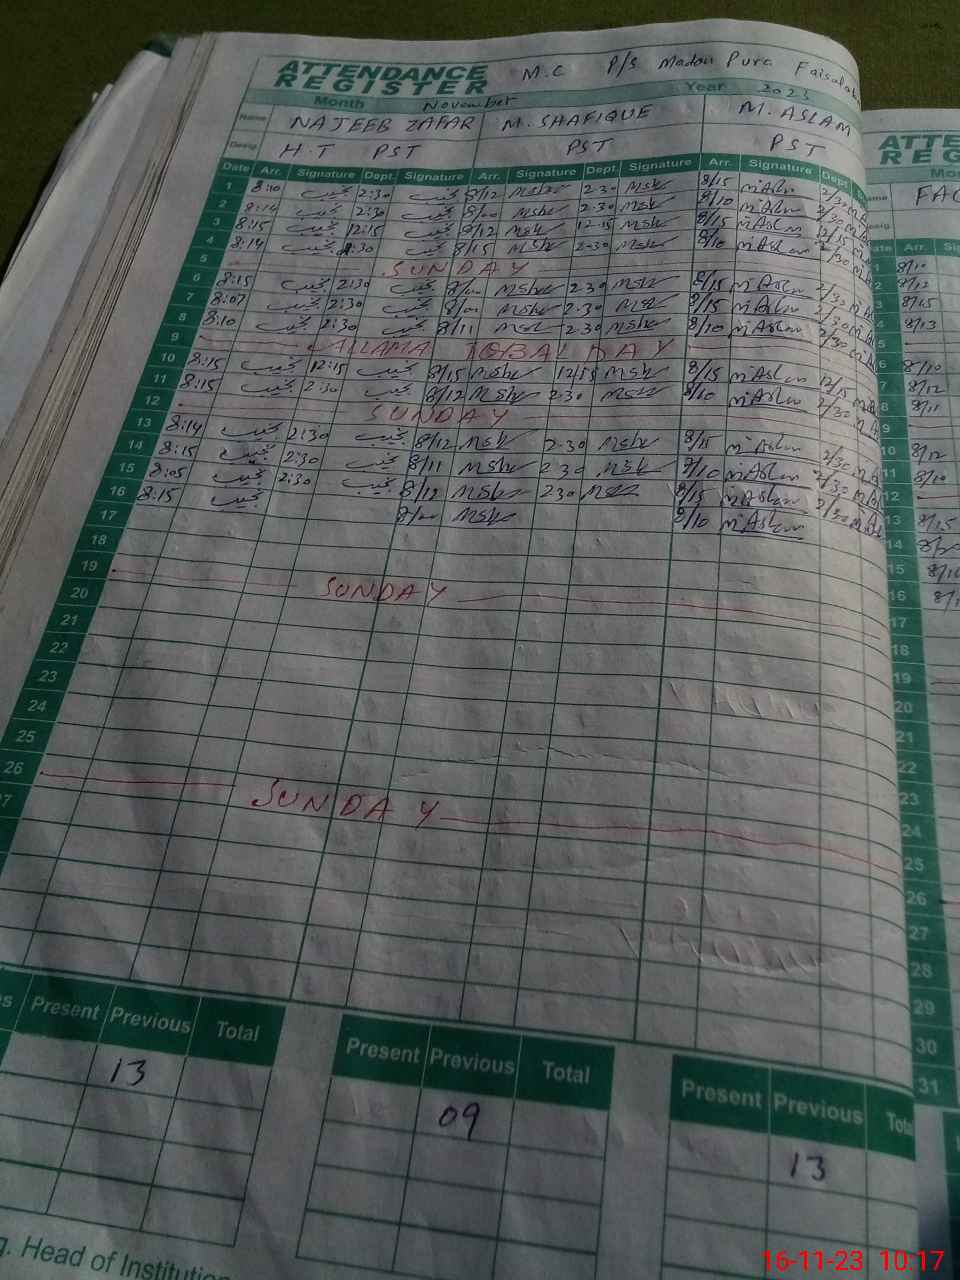 ATTENDANCE REGISTER M.C P/S Madan Pura Faisalab
Month November Year 2023
Name NAJEEB ZAFAR M. SHAFIQUE M. ASLAM
Desig. H.T PST PST PST
Date Arr. Signature Dept. Signature Arr. Signature Dept. Signature Arr. Signature Dept.
1 8:10 نجیب 2:30 نجیب 8/12 2-30 8/15 m.Aslm 2/30
2 8:14 نجیب 2:30 نجیب 8/00 2-30 8/10 m.Aslm 2/30
3 8:15 نجیب 12:15 نجیب 8/12 12-15 8/15 m.Aslm 12/15
4 8:14 نجیب 2:30 نجیب 8/15 2-30 8/10 m.Aslm 2/30
5 SUNDAY
6 8:15 نجیب 2:30 نجیب 8/00 2-30 8/15 m.Aslm 2/30
7 8:07 نجیب 2:30 نجیب 8/00 2-30 8/15 m.Aslm 2/30
8 8:10 نجیب 2:30 نجیب 8/11 2-30 8/10 m.Aslm 2/30
9 ALLAMA IQBAL DAY
10 8:15 نجیب 12:15 نجیب 8/15 12/15 8/15 m.Aslm 12/15
11 8:15 نجیب 2:30 نجیب 8/12 2-30 8/10 m.Aslm 2/30
12 SUNDAY
13 8:14 نجیب 2:30 نجیب 8/12 2-30 8/15 m.Aslm 2/30
14 8:15 نجیب 2:30 نجیب 8/11 2-30 8/10 m.Aslm 2/30
15 8:05 نجیب 2:30 نجیب 8/12 2-30 8/15 m.Aslm 2/30
16 8:15 نجیب 8/00 8/10 m.Aslm
17
18
19 SUNDAY
20
21
22
23
24
25
26 SUNDAY
7
Present Previous Total Present Previous Total Present Previous Tota
13 09 13
g. Head of Institution
ATTE
REG
Mo
ame FAC
esig.
ate Arr. Si
1 8/10
2 8/12
3 8/15
4 8/13
5
6 8/10
7 8/12
8 8/11
9
10 8/12
11 8/10
12
13 8/15
14
15
16
17
18
19
20
21
22
23
24
25
26
27
28
29
30
31
16-11-23 10:17